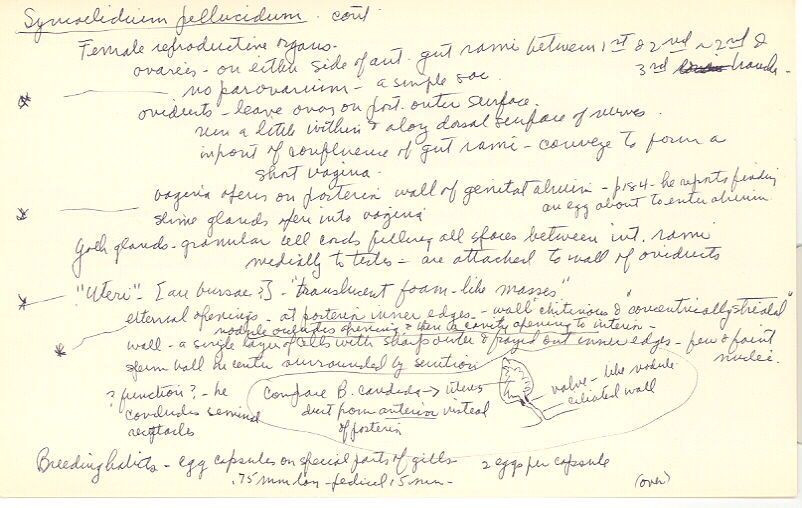 Syncoelidium pellucidum - cont
Female reproductive organs -
ovaries - on either side of ant. gut rami between 1st & 2nd ~ 2nd &
3rd branch -
no parovarium - a simple sac
oviducts - leave ovary on post. outer surface.
run a little within & along dorsal surface of nerves
in front of confluence of gut rami - converge to form a
short vagina -
vagina opens on posterior wall of genital atrium - p184 - he reports finding
an egg about to enter atrium
slime glands open into vagina
Yolk glands - granular cell cords filling all spaces between int. rami
medially to testes - are attached to wall of oviducts
"Uteri" - [are bursae?] - "translucent foam-like masses"
external openings - at posterior inner edges - wall "chitinous & "concentrically striated"
nodule outsides opening & there is cavity opening to interior -
wall - a single layer of cells with sharp outer & frayed out inner edges - few & faint
nuclei.
sperm ball in center surrounded by secretion
? function? - he
concludes seminal
receptacles
Compare B. candida → uterus
duct from anterior instead
of posterior
valve - like nodule
ciliated wall
Breeding habits - egg capsules on special parts of gills 2 eggs per capsule
.75 mm long - pedicel .15 mm -
(over)